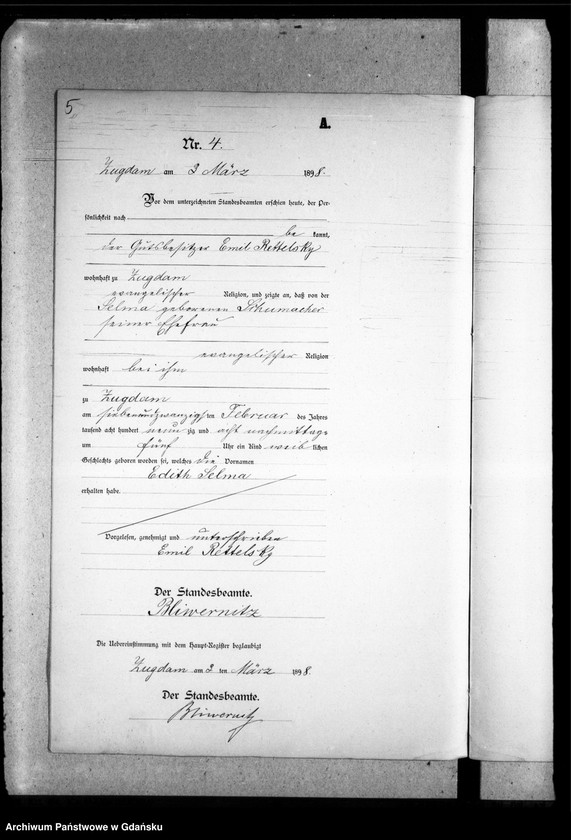 5
A.
Nr. 4.
Zugdam am 3 März 1898.
Vor dem unterzeichneten Standesbeamten erschien heute, der Per-
sönlichkeit nach
be kannt,
der Gutsbesitzer Emil Rettelsky
wohnhaft zu Zugdam
evangelischer Religion, und zeigte an, daß von der
Selma geborenen Schumacher
seiner Ehefrau
evangelischer Religion
wohnhaft bei ihm
zu Zugdam
am siebenundzwanzigsten Februar des Jahres
tausend acht hundert neun zig und acht nachmittags
um fünf Uhr ein Kind weib lichen
Geschlechts geboren worden sei, welches die Vornamen
Edith Selma
erhalten habe.
Vorgelesen, genehmigt und unterschrieben
Emil Rettelsky
Der Standesbeamte.
Bliwernitz
Die Uebereinstimmung mit dem Haupt-Register beglaubigt
Zugdam am 3 ten März 1898.
Der Standesbeamte.
Bliwernitz
Archiwum Państwowe w Gdańsku